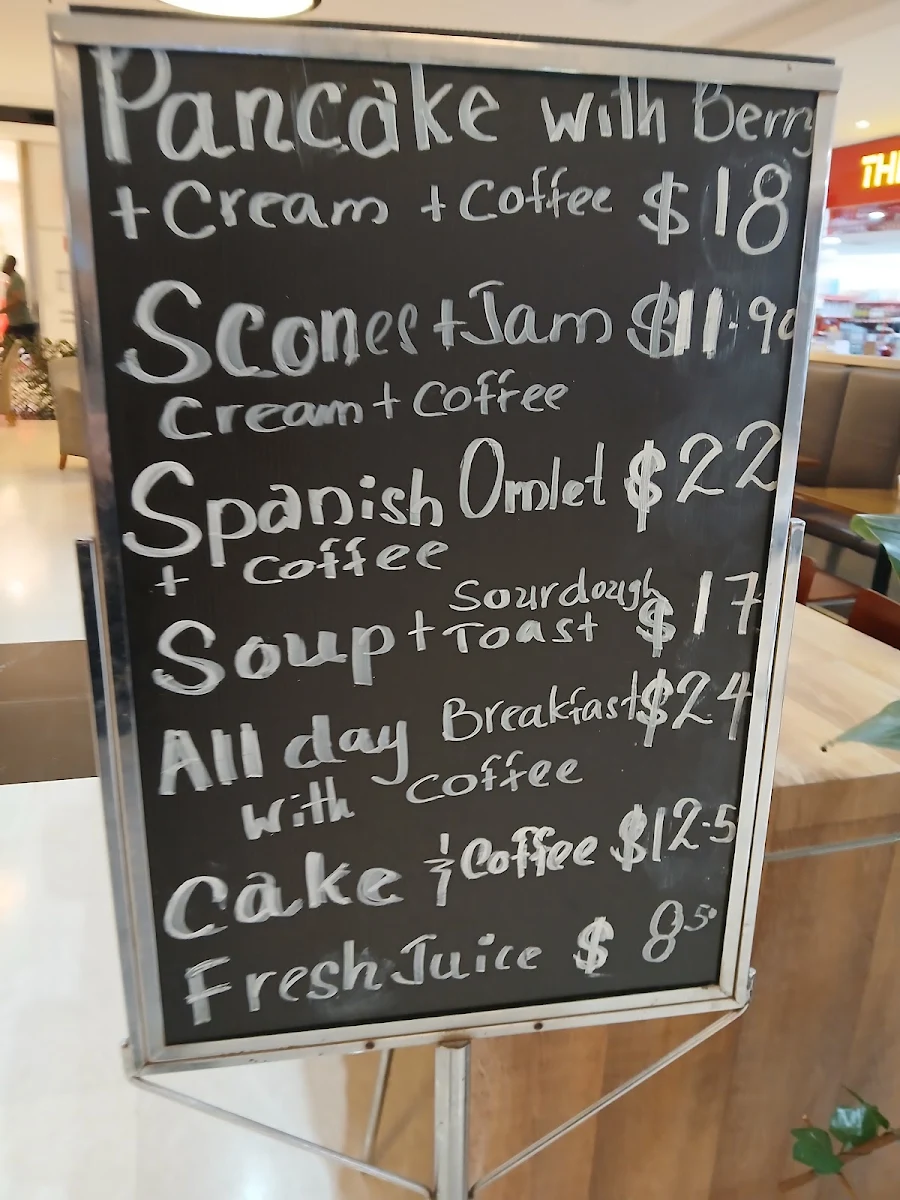 Pancake with Berry
+ Cream + Coffee $18
Scones + Jam $11.90
Cream + Coffee
Spanish Omlet $22
+ Coffee
Sourdough
Soup + Toast $17
All day Breakfast $24
With Coffee
Cake & Coffee $12.5
Fresh Juice $ 8.50